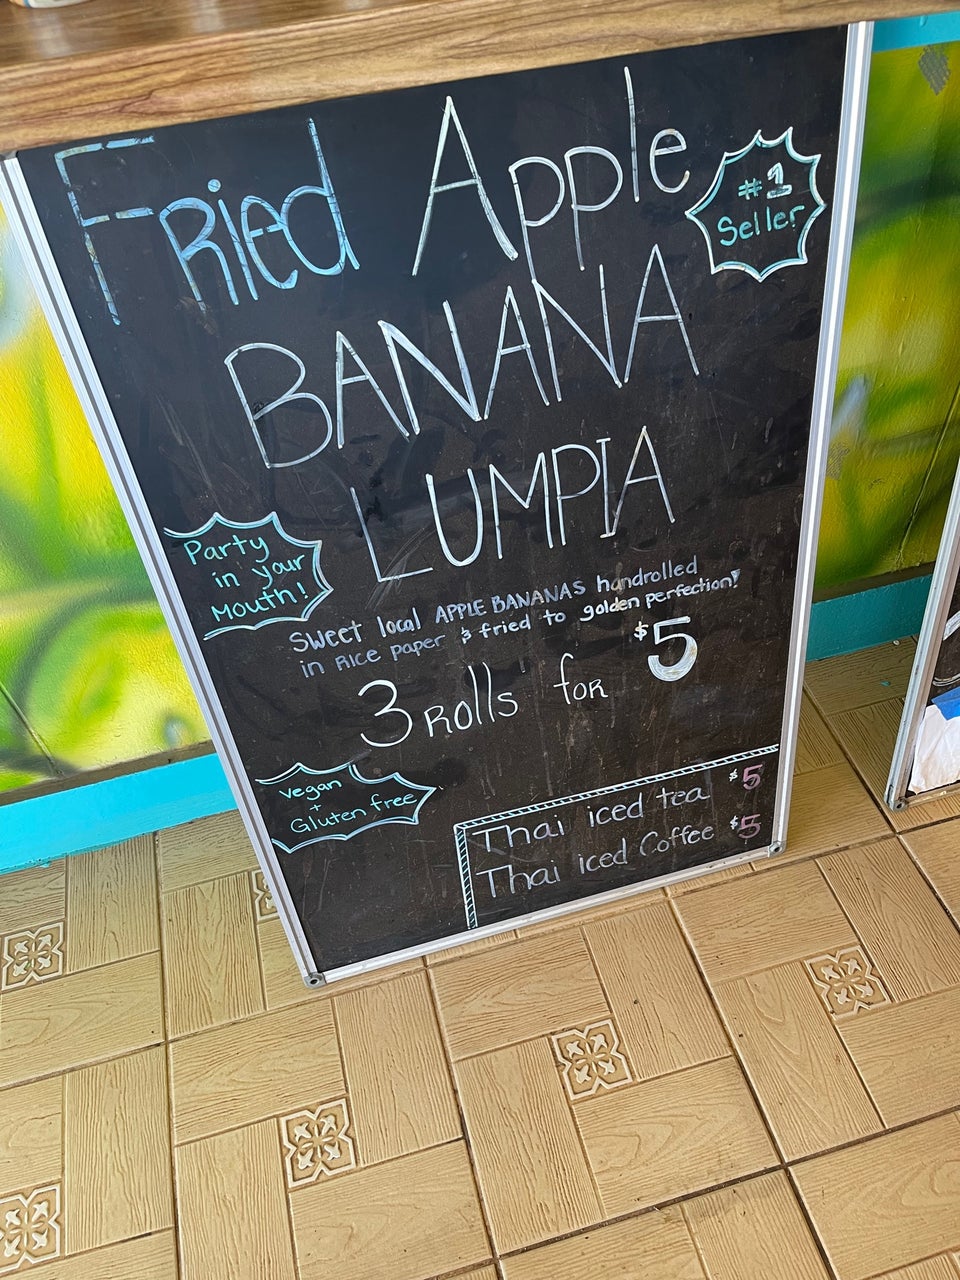 Fried Apple
BANANA
LUMPIA
#1
Seller
Party
in your
Mouth!
Sweet local APPLE BANANAS handrolled
in Rice paper & fried to golden perfection!
3 Rolls for $5
Vegan
+
Gluten free
Thai iced tea $5
Thai iced Coffee $5